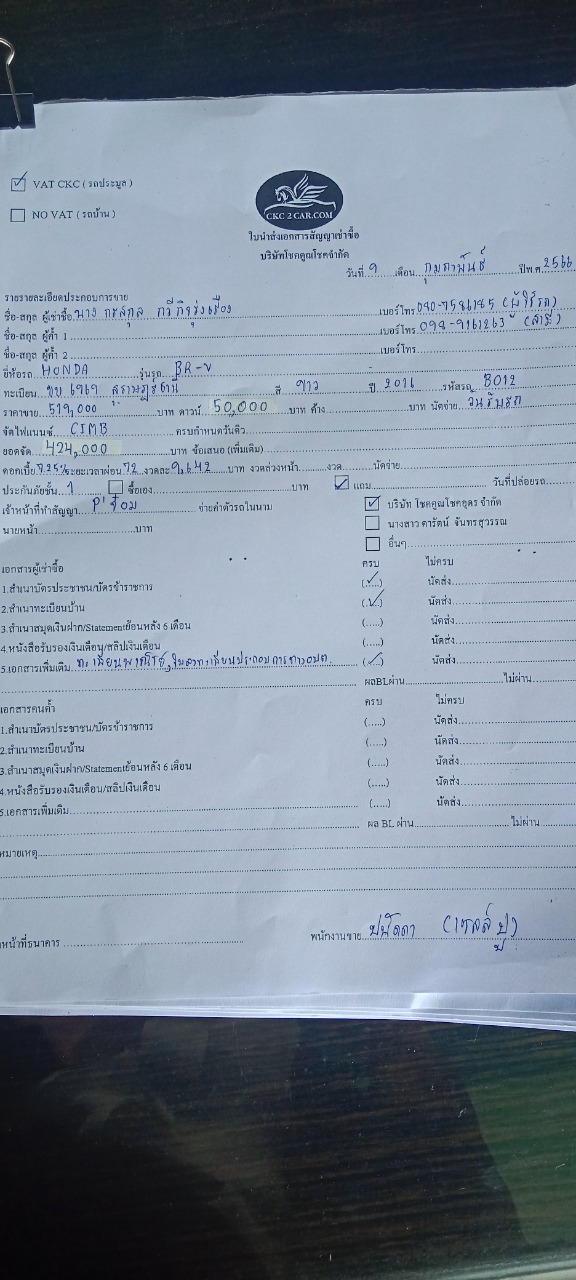 VAT CKC ( รถประมูล )
NO VAT ( รถบ้าน )
CKC 2 CAR.COM
ใบนำส่งเอกสารสัญญาเช่าซื้อ
บริษัทโชคคูณโชคจำกัด
วันที่ 9 เดือน กุมภาพันธ์ ปีพ.ศ. 2566
รายรายละเอียดประกอบการขาย
ชื่อ-สกุล ผู้เช่าซื้อ นาง เบอร์โทร 080-7586185 (ผู้ใช้รถ)
ชื่อ-สกุล ผู้ค้ำ 1 เบอร์โทร 098-9161263
ชื่อ-สกุล ผู้ค้ำ 2 เบอร์โทร
ยี่ห้อรถ HONDA รุ่นรถ BR-V
ทะเบียน 6969 สุราษฎร์ธานี สี ขาว ปี 2016 รหัสรถ B012
ราคาขาย 519,000 บาท ดาวน์ 50,000 บาท ค้าง บาท นัดจ่าย วันรับรถ
จัดไฟแนนซ์ CIMB ครบกำหนดวันคิว
ยอดจัด 424,000 บาท ซื้อเสนอ (เพิ่มเติม)
ดอกเบี้ย 7.25% ระยะเวลาผ่อน 72 งวดละ 9,642 บาท งวดล่วงหน้า งวด นัดจ่าย
ประกันภัยชั้น 1 ซื้อเอง บาท แถม วันที่ปล่อยรถ
เจ้าหน้าที่ทำสัญญา จ่ายค่าตัวรถในนาม บริษัท โชคคูณโชคอุดร จำกัด
นายหน้า บาท นางสาว ดารัตน์ จันทรสุวรรณ
อื่นๆ
เอกสารผู้เช่าซื้อ ครบ ไม่ครบ
1.สำเนาบัตรประชาชน/บัตรข้าราชการ (.....) นัดส่ง
2.สำเนาทะเบียนบ้าน (.....) นัดส่ง
3.สำเนาสมุดเงินฝาก/Statementย้อนหลัง 6 เดือน (.....) นัดส่ง
4.หนังสือรับรองเงินเดือน/สลิปเงินเดือน (.....) นัดส่ง
5.เอกสารเพิ่มเติม ทะเบียนพาณิชย์, (.....) นัดส่ง
ผลBLผ่าน ไม่ผ่าน
เอกสารคนค้ำ ครบ ไม่ครบ
1.สำเนาบัตรประชาชน/บัตรข้าราชการ (.....) นัดส่ง
2.สำเนาทะเบียนบ้าน (.....) นัดส่ง
3.สำเนาสมุดเงินฝาก/Statementย้อนหลัง 6 เดือน (.....) นัดส่ง
4.หนังสือรับรองเงินเดือน/สลิปเงินเดือน (.....) นัดส่ง
5.เอกสารเพิ่มเติม (.....) นัดส่ง
ผล BL ผ่าน ไม่ผ่าน
หมายเหตุ
หน้าที่ธนาคาร พนักงานขาย ปนัดดา (เซลล์ปู)